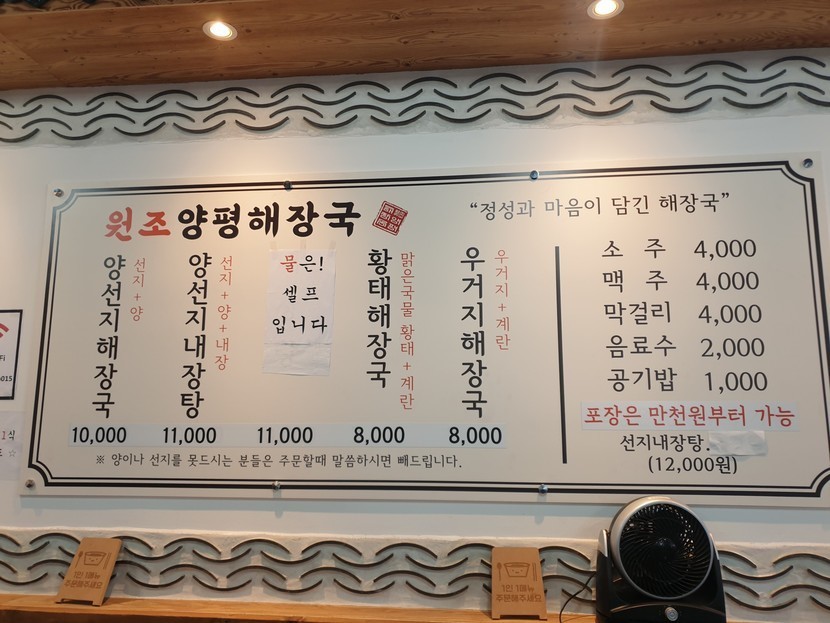 원조양평해장국
"정성과 마음이 담긴 해장국"
양선지해장국
선지+양
10,000
양선지내장탕
선지+양+내장
11,000
물은!
셀프
입니다
11,000
황태해장국
맑은국물 황태+계란
8,000
우거지해장국
우거지+계란
8,000
※ 양이나 선지를 못드시는 분들은 주문할때 말씀하시면 빼드립니다.
소 주 4,000
맥 주 4,000
막걸리 4,000
음료수 2,000
공기밥 1,000
포장은 만천원부터 가능
선지내장탕.
(12,000원)
1인 1메뉴
주문해주세요
1인 1메뉴
주문해주세요